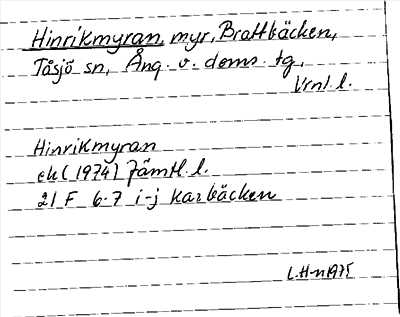 Hinrikmyran, myr, Brattbäcken,
Tåsjö sn, Ång. v. doms. tg,
Vrnl. l.
Hinrikmyran
ek (1974) Jämtl. l.
21 F 6-7 i-j Karbäcken
L.H-n 1975